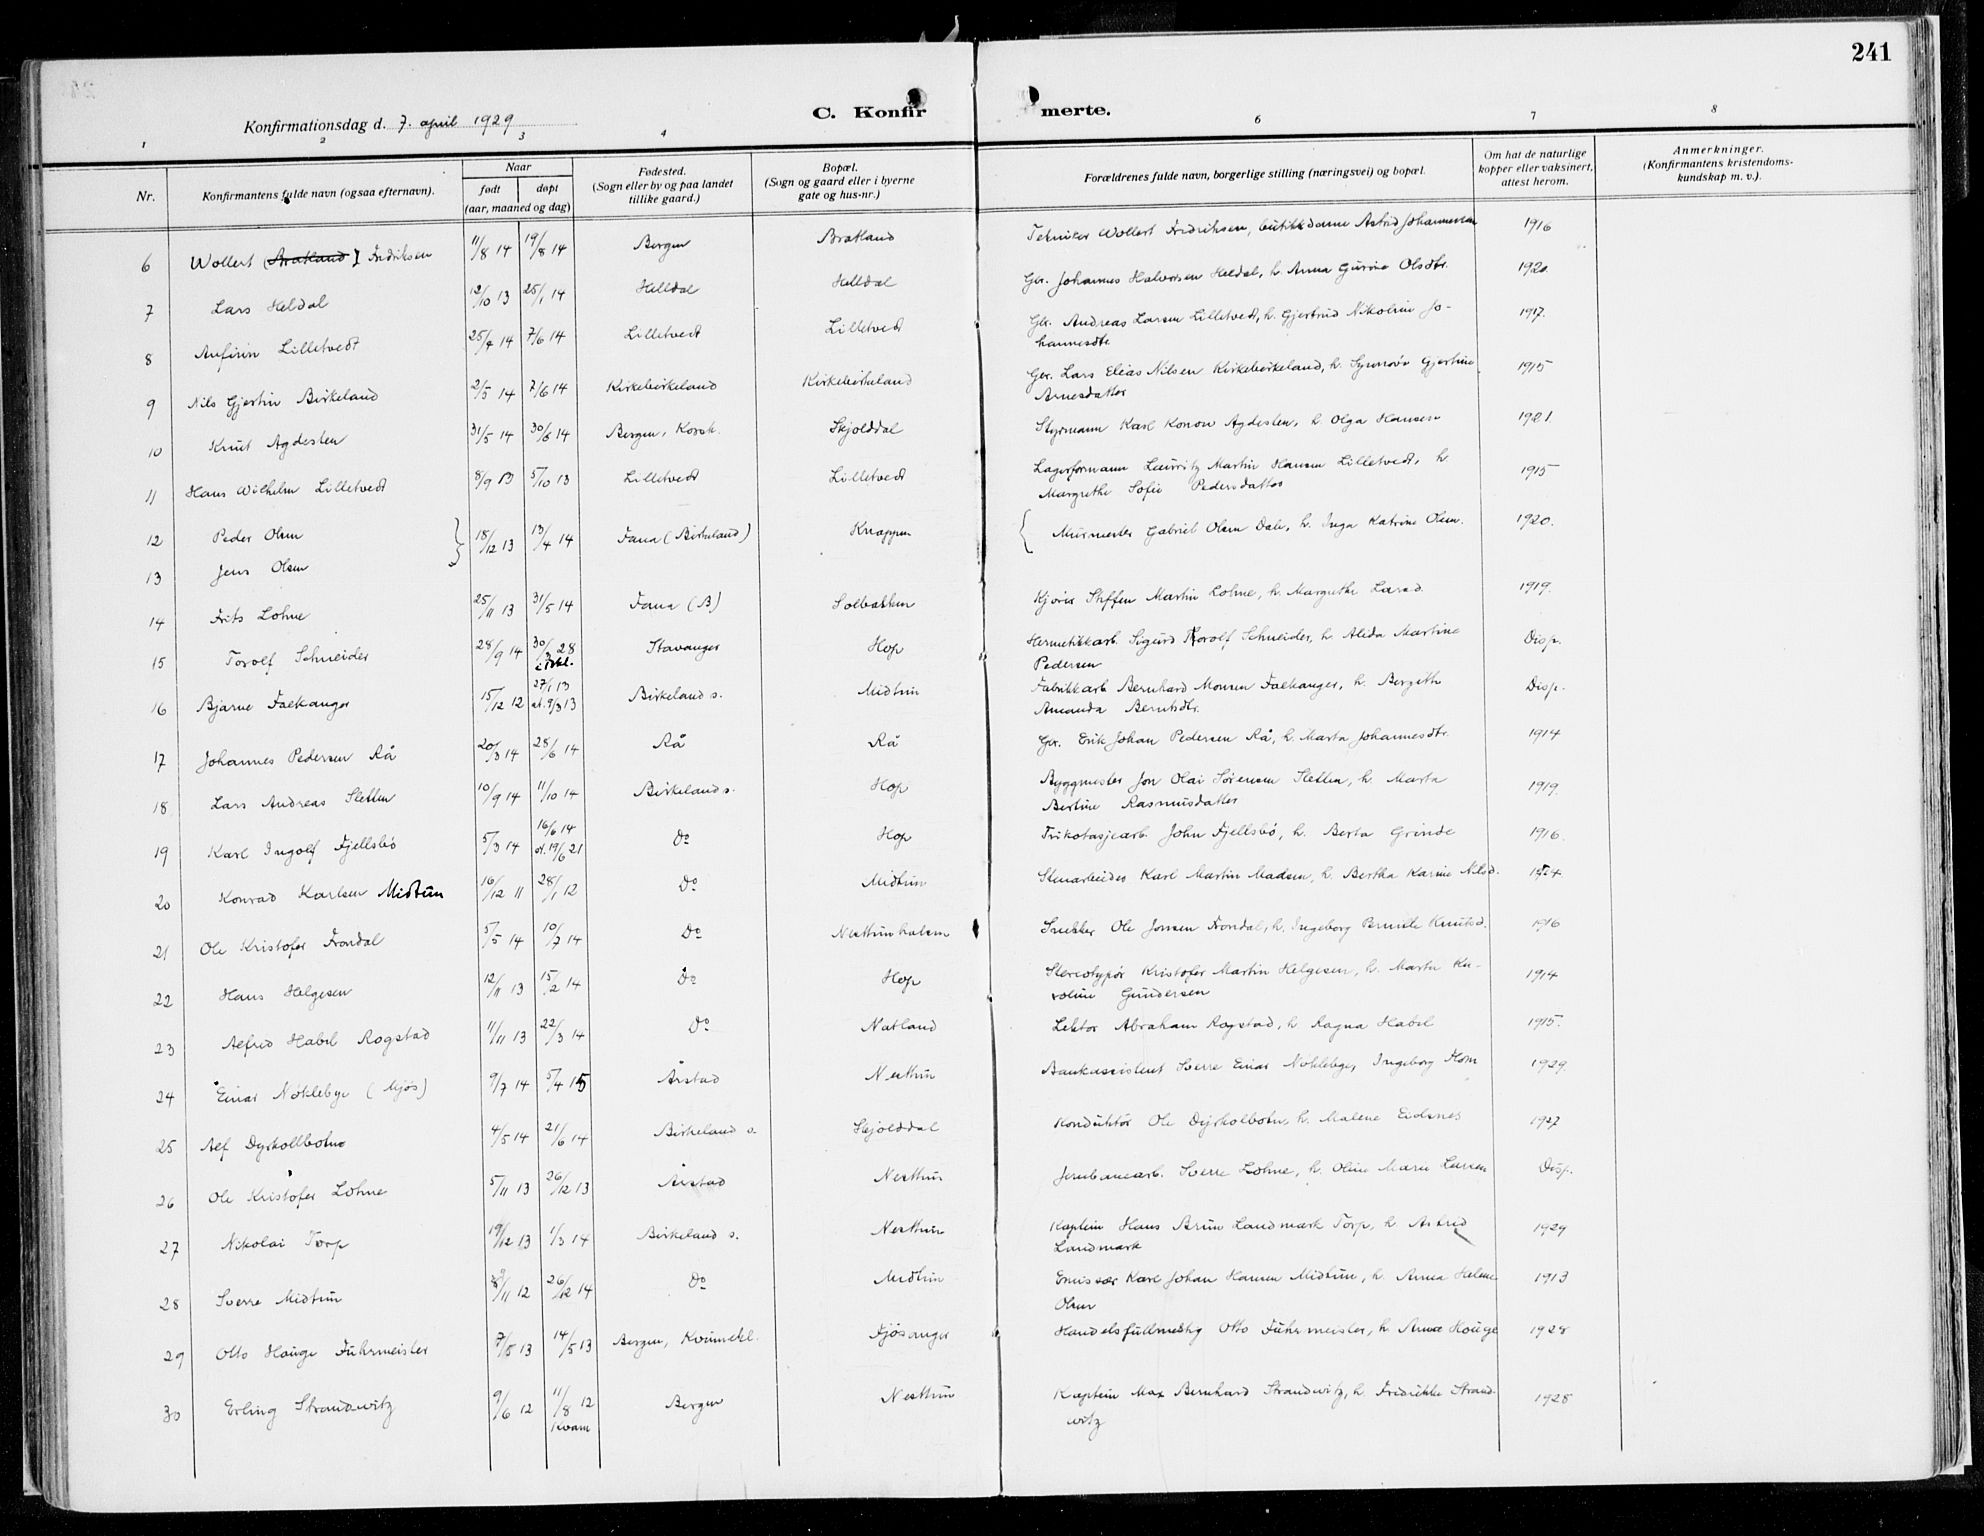 241
C. Konfirmerte.
Konfirmationsdag d. 7. april 1929
1 2 3 4 6 7 8
Nr. Konfirmantens fulde navn (ogsaa efternavn). Naar født døpt (aar, maaned og dag) Fødested. (Sogn eller by og paa landet tillike gaard.) Bopæl. (Sogn og gaard eller i byerne gate og hus-nr.) Forældrenes fulde navn, borgerlige stilling (næringsvei) og bopæl. Om hat de naturlige kopper eller vaksinert, attest herom. Anmerkninger. (Konfirmantens kristendomskundskap m. v.).
6 Wollert (Bratland) Fredriksen 11/8 14 19/8 14 Bergen Bratland Tekniker Wollert Fredriksen, butikkdame Astrid Johannessen 1916
7 Lars Heldal 12/10 13 25/1 14 Helldal Helldal Gbr. Johannes Halvorsen Heldal, h. Anna Gurine Olsdtr. 1920.
8 Anfinn Lilletvedt 25/4 14 7/6 14 Lilletvedt Lilletvedt Gbr. Andreas Larsen Lilletvedt, h. Gjertrud Nikoline Jo-
hannesdtr. 1917.
9 Nils Gjertin Birkeland 2/5 14 7/6 14 Kirkebirkeland Kirkebirkeland Gbr. Lars Elias Nilsen Kirkebirkeland, h. Synnøv Gjertine
Arnesdatter 1915
10 Knut Agdesten 31/5 14 30/6 14 Bergen, Korsk. Skjolddal Styrmann Karl Konow Agdesten, h. Olga Hansen 1921.
11 Hans Wilhelm Lilletvedt 8/9 13 5/10 13 Lilletvedt Lilletvedt Lagerformann Lauritz Martin Hansen Lilletvedt, h.
Margrethe Sofie Pedersdatter 1915
12 Peder Olsen } 18/12 13 13/4 14 Fana (Birkeland) Knappen { Murmester Gabriel Olsen Dale, h. Inga Katrine Olsen. 1920.
13 Jens Olsen
14 Frits Lohne 25/11 13 31/5 14 Fana (B) Solbakken Kjører Steffen Martin Lohne, h. Margrethe Larsd. 1919.
15 Torolf Schneider 28/9 14 30/ 28 Stavanger Hop Hermetikkarb. Sigurd Torolf Schneider, h. Alida Martine
Pedersen Disp.
16 Bjarne Falkanger 15/12 12 27/1 13 st. 9/3 13 Birkeland s. Midttun Fabrikkarb. Bernhard Monsen Falkanger, h. Bergithe
Amanda Berntsdtr. Disp.
17 Johannes Pedersen Rå 20/3 14 28/6 14 Rå Rå Gbr. Erik Johan Pedersen Rå, h. Marta Johannesdtr. 1914
18 Lars Andreas Sletten 10/9 14 11/10 14 Birkeland s. Hop Byggmester Jon Olai Sørensen Sletten, h. Marta
Bertine Rasmusdatter 1919.
19 Karl Ingolf Fjellsbø 5/3 14 16/6 14 st. 19/6 21 Do Hop Trikotasjearb. John Fjellsbø, h. Berta Grinde 1916.
20 Konrad Karlsen Midttun 16/12 11 28/1 12 Do Midttun Stenarbeider Karl Martin Madsen, h. Bertha Karine Nilsd.
21 Ole Kristofer Frondal 5/5 14 10/7 14 Do Nesttunhalsen Snekker Ole Jonsen Frondal, h. Ingeborg Knutsd. 1916
22 Hans Helgesen 12/11 13 15/2 14 Do Hop Stereotypør Kristofer Martin Helgesen, h. Marta Ka-
roline Gundersen 1914
23 Alfred Habel Rogstad 11/11 13 22/3 14 Do Natland Lektor Abraham Rogstad, h. Ragna Habel 1915.
24 Einar Nøklebye (Mjøs) 9/7 14 5/4 15 Årstad Nesttun Bankassistent Sverre Einar Nøklebye, Ingeborg 1929
25 Alf Dyrkolbotn 4/5 14 21/6 14 Birkeland s. Skjolddal Konduktør Ole Dyrkolbotn, h. Malene Eidsnes 1927
26 Ole Kristofer Lohne 5/11 13 26/12 13 Årstad Nesttun Jernbanearb. Sverre Lohne, h. Oline Marie Larsen Disp.
27 Nikolai Torp 19/12 13 1/3 14 Birkeland s. Nesttun Kaptein Hans Brun Landmark Torp, h. Astrid
Landmark 1929
28 Sverre Midttun /11 12 26/12 14 Do Midttun Emissær Karl Johan Hansen Midttun, h. Anna Helene
Olsen 1913
29 Otto Hauge Fuhrmeister 7/5 13 14/5 13 Bergen, Kvinnekl. Fjøsanger Handelsfullmektig Otto Fuhrmeister, h. Anna Hauge 1928
30 Erling Strandwitz 9/6 12 11/8 12 Kvam Bergen Nesttun Kaptein Max Bernhard Strandwitz, h. Fredrikke Strand-
witz 1928